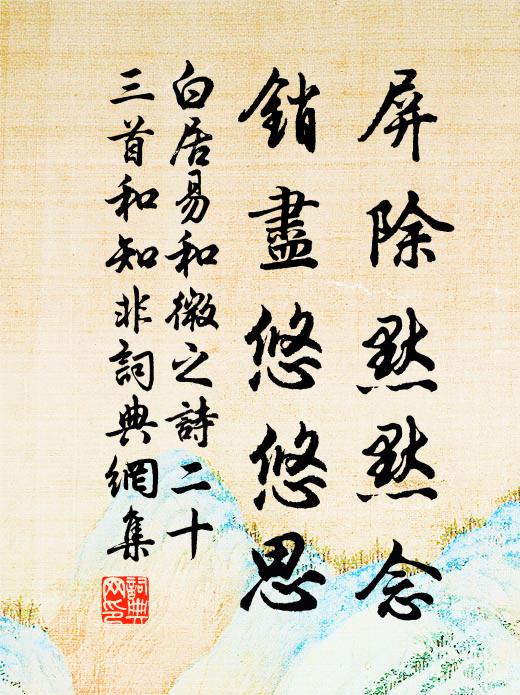 屏除默默念
銷盡悠悠思
白居易和微之詩二十
三首和知非詞典網集
詞典
網印